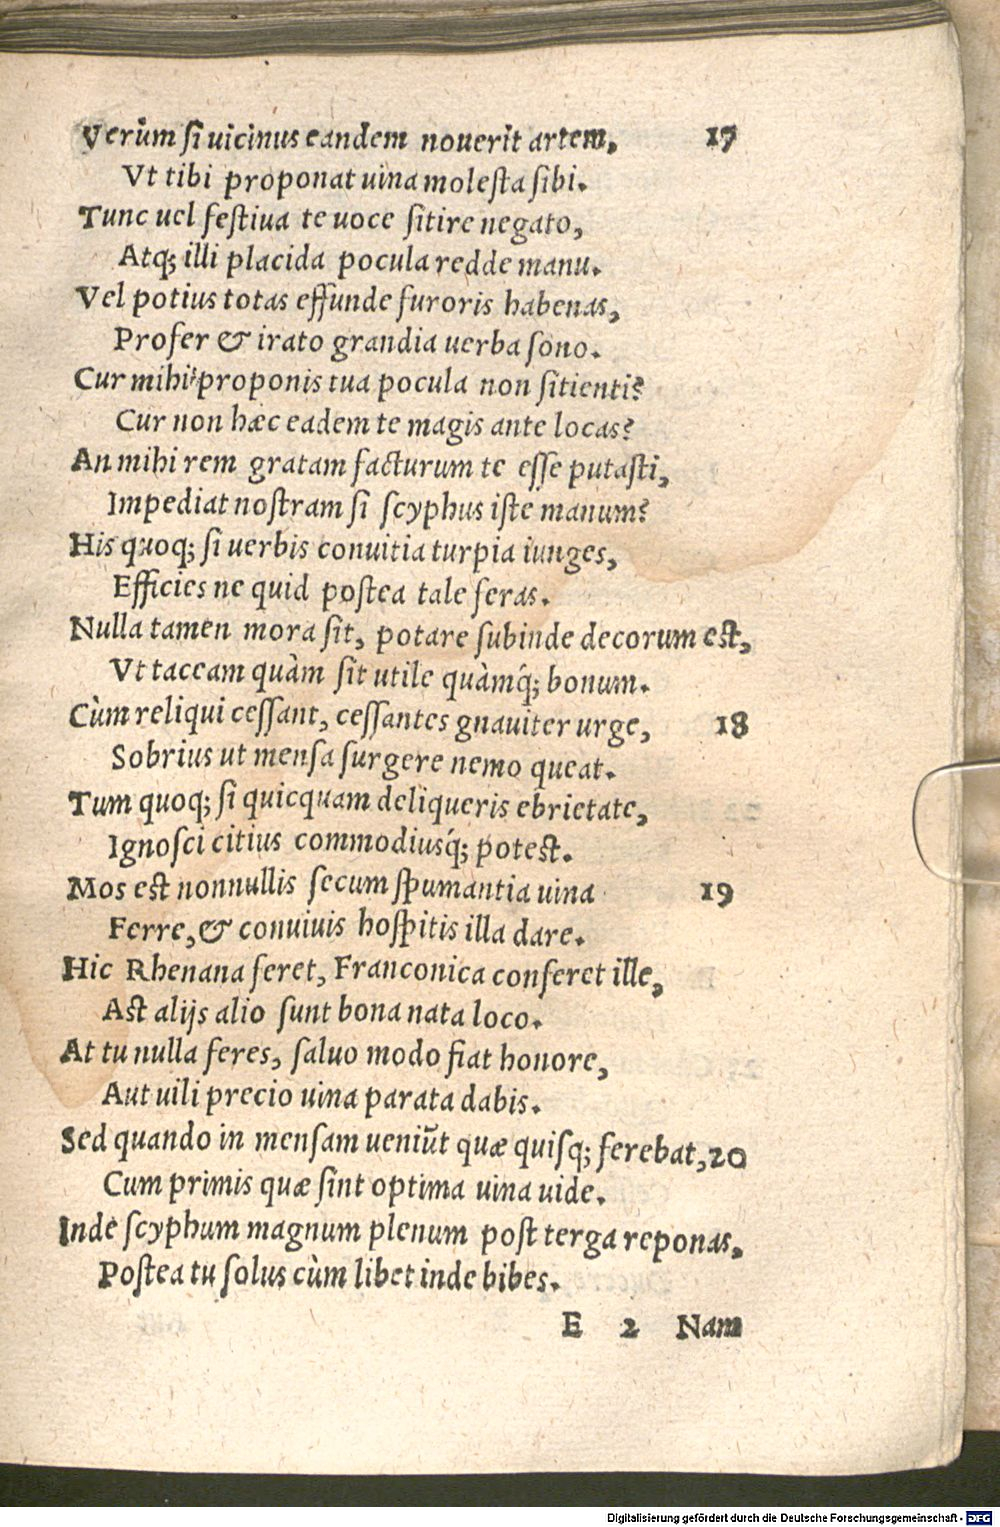 Verùm si uicinus eandem nouerit artem, 17
Vt tibi proponat uina molesta sibi.
Tunc uel festiua te uoce sitire negato,
Atq; illi placida pocula redde manu.
Vel potius totas effunde furoris habenas,
Profer & irato grandia uerba sono.
Cur mihi proponis tua pocula non sitienti?
Cur non hæc eadem te magis ante locas?
An mihi rem gratam facturum te esse putasti,
Impediat nostram si scyphus iste manum?
His quoq; si uerbis conuitia turpia iunges,
Efficies ne quid postea tale feras.
Nulla tamen mora sit, potare subinde decorum est,
Vt taceam quàm sit utile quàmq́; bonum.
Cùm reliqui cessant, cessantes gnauiter urge, 18
Sobrius ut mensa surgere nemo queat.
Tum quoq; si quicquam deliqueris ebrietate,
Ignosci citius commodiusq́; potest.
Mos est nonnullis secum spumantia uina 19
Ferre, & conuiuis hospitis illa dare.
Hic Rhenana feret, Franconica conferet ille,
Ast alijs alio sunt bona nata loco.
At tu nulla feres, saluo modo fiat honore,
Aut uili precio uina parata dabis.
Sed quando in mensam ueniūt quæ quisq; ferebat, 20
Cum primis quæ sint optima uina uide.
Inde scyphum magnum plenum post terga reponas,
Postea tu solus cùm libet inde bibes.
E 2 Nam
Digitalisierung gefördert durch die Deutsche Forschungsgemeinschaft - DFG